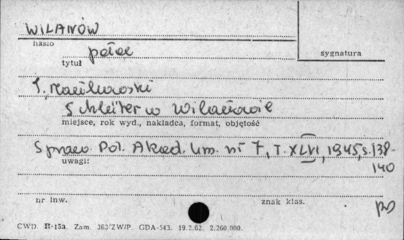 WILANÓW
hasło
pałac
tytuł
sygnatura
Schlüter w Wilanowie
miejsce, rok wyd., nakładca, format, objętość
Spraw. Pol. Akad. Um. nr 7, T. XLVI, 1945, s. 138-
140
uwagi:
nr inw.
znak klas.
CWD. II-15a. Zam. 363/ZW/P. GDA-543. 19.2.62. 2.260.000.